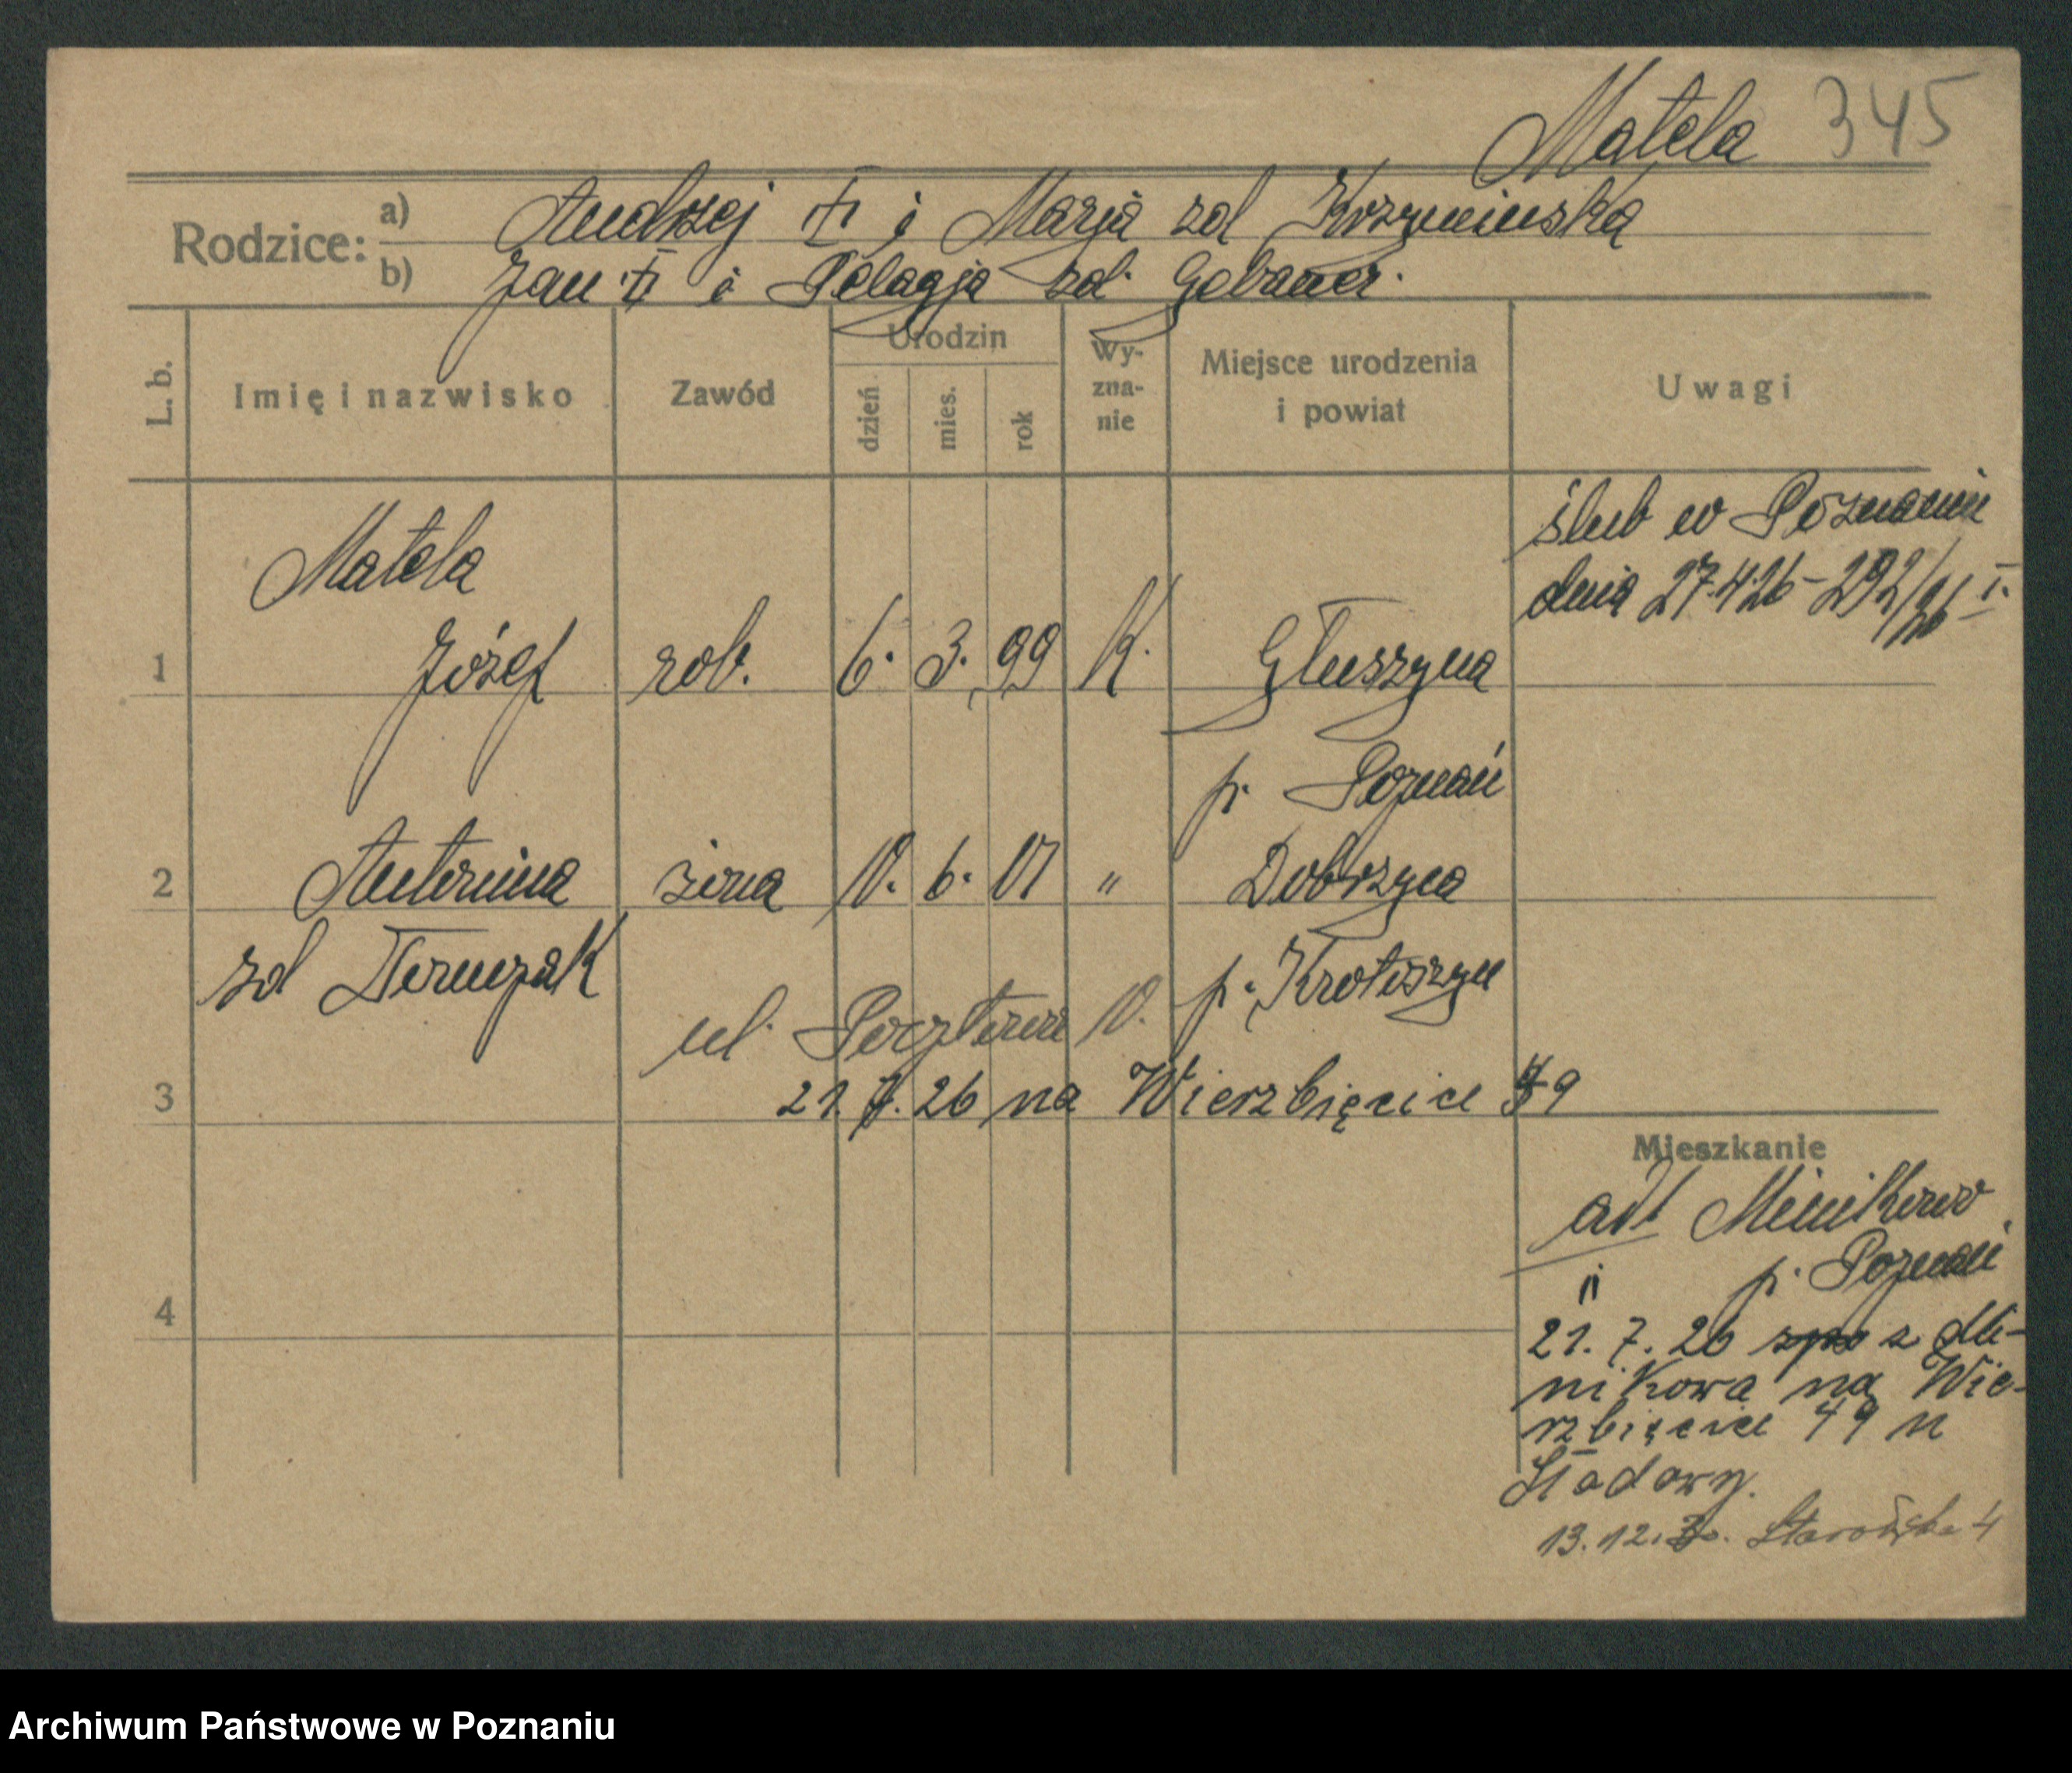 Matela 345
Rodzice: a) Andrzej † i Marja zd Krzymińska
b) Jan † i Pelagja zd. Gebauer.
L. b. Imię i nazwisko Zawód Urodzin dzień mies. rok Wyznanie Miejsce urodzenia i powiat Uwagi
ślub w Poznaniu
dnia 27.4.26 - 292/26 I.
Matela
1 Józef rob. 6. 3. 99 K. Głuszyna
p. Poznań
2 Antonina żona 10. 6. 01 " Dobrzyca
zd p. Krotoszyn
ul. Pocztowa 10.
3 21. 7. 26 na Wierzbięcice 49
Mieszkanie
adl Minikowo
4 " p. Poznań
21. 7. 26 z Mi-
nikowa na Wie-
rzbięcice 49 u
13.12.30. 4
Archiwum Państwowe w Poznaniu